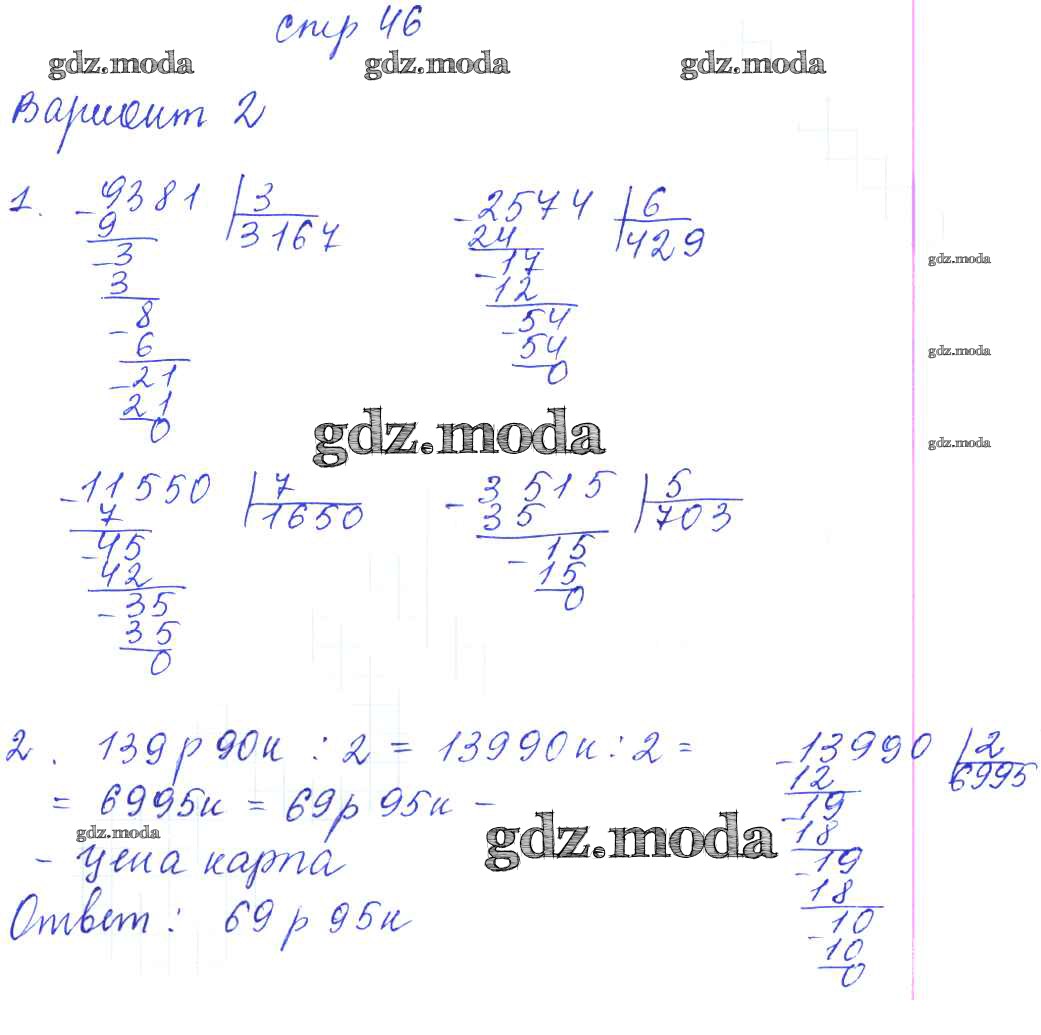 стр 46
gdz.moda gdz.moda gdz.moda
Вариант 2
1. -9381 | 3
9 3167
-3
3
-8
6
-21
21
0
-2574 | 6
24 429
-17
12
-54
54
0
gdz.moda
gdz.moda
gdz.moda
gdz.moda
-11550 | 7
7 1650
-45
42
-35
35
0
-3515 | 5
35 703
-15
15
0
2. 139р 90к : 2 = 13990к : 2 =
= 6995к = 69р 95к -
gdz.moda gdz.moda
- цена карпа
Ответ: 69р 95к
-13990 | 2
12 6995
-19
18
-19
18
-10
10
0